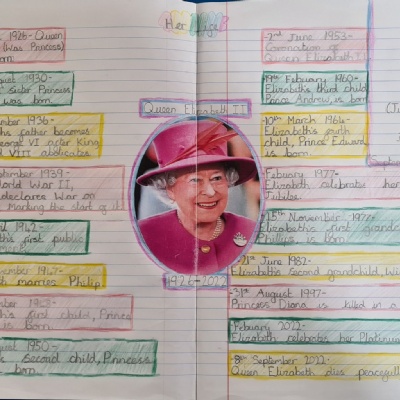 Her life
Queen Elizabeth II
1926-2022
1926- Queen
(Was Princess)
born.
1930-
sister Princess
was born.
1936-
father becomes
George VI after King
VIII abdicates
September 1939-
World War II,
declares War on
Marking the start of it.
1942-
first public
1947-
marries Philip
first child, Prince
is Born.
August 1950-
second child, Princess
born.
2nd June 1953-
Coronation of
Queen Elizabeth II
19th Febuary 1960-
Elizabeths third child
Prince Andrew, is born
10th March 1964-
Elizabeth's fourth
child, Prince Edward
is born.
Febuary 1977-
Elizabeth celebrates her
Jubilee.
15th November 1977-
Elizabeth's first grandch
Phillips is Born.
21st June 1982-
Elizabeths second grandchild, Will
31st August 1997-
Princess Diana is killed in a
Febuary 2022-
Elizabeth celebrates her Platinum
8th September 2022-
Queen Elizabeth dies peacefull